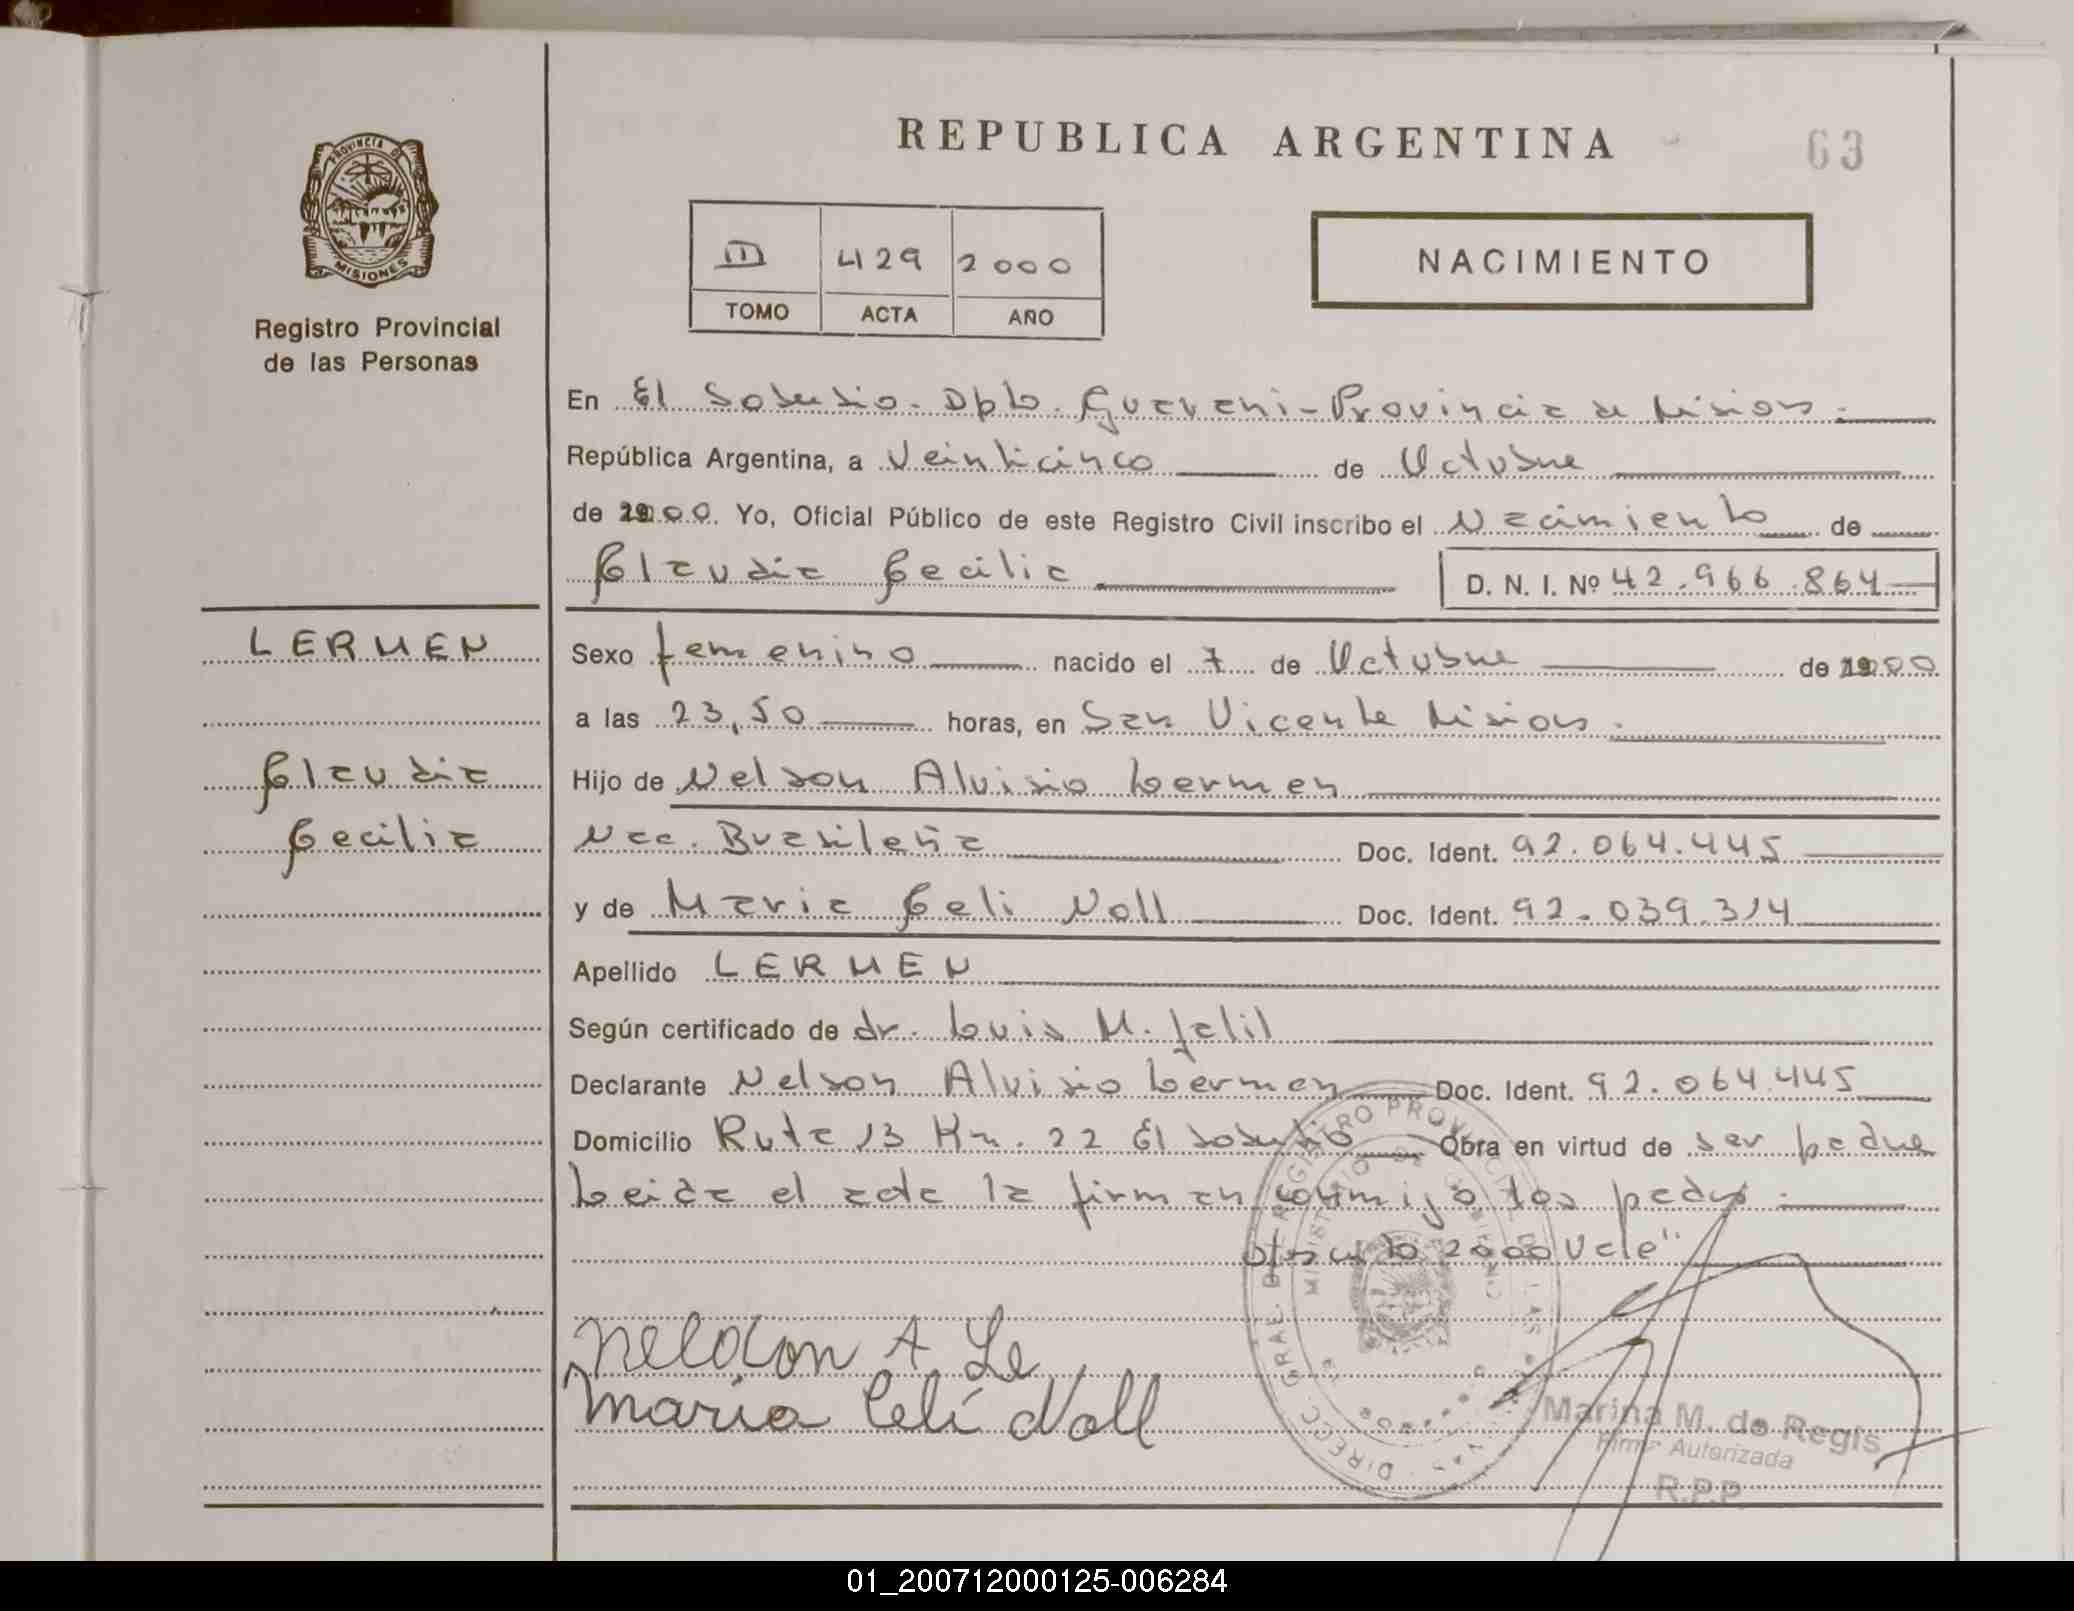 REPUBLICA ARGENTINA
63
PROVINCIA DE
MISIONES
Registro Provincial
de las Personas
III 429 2000
TOMO ACTA AÑO
NACIMIENTO
En El Soberbio - Dpto. Guarani - Provincia de Misiones.
República Argentina, a Veinticinco de Octubre
de 2000. Yo, Oficial Público de este Registro Civil inscribo el Nacimiento de
Claudia Cecilia D. N. I. Nº 42.966.864
LERMEN
Claudia
Cecilia
Sexo femenino nacido el 7 de Octubre de 2000
a las 23,50 horas, en San Vicente Misiones.
Hijo de Nelson Aluisio Lermen
Nac. Brasileña Doc. Ident. 92.064.445
y de Maria Celi Noll Doc. Ident. 92.039.314
Apellido LERMEN
Según certificado de dr. Luis M. Jalil
Declarante Nelson Aluisio Lermen Doc. Ident. 92.064.445
Domicilio Ruta 13 Km. 22 El Soberbio Obra en virtud de ser padre
Leida el acta la firman conmigo los padres.
2000 Vale"
Nelson A Le
Maria Celi Noll
Marina M. de Regis
Firma Autorizada
R.P.P.
01_200712000125-006284